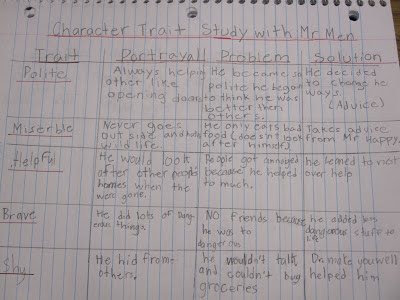 Character Trait Study with Mr Men
Trait Portrayall Problem Solution
Polite
Always helping
other like
opening doors
He became so
polite he began
to think he was
better then
others.
He decided
to change he
ways.
(Advice)
Miserble
Never goes
out side and
wild life.
He only eats bad
food (doesn't look
after himself)
Takes advice
from Mr Happy.
Helpful
He would look
after other people
homes when the
went gone.
People got annoyed
because he helped
to much.
he learned to not
over help
Brave
He did lots of dang-
erous things.
NO frends because
he was to
dangerous
he added less
dangerous stuff to
life
Shy
He hid from
others.
he wouldn't talk
and couldn't buy
groceries
Dr. makeyouwell
helped him